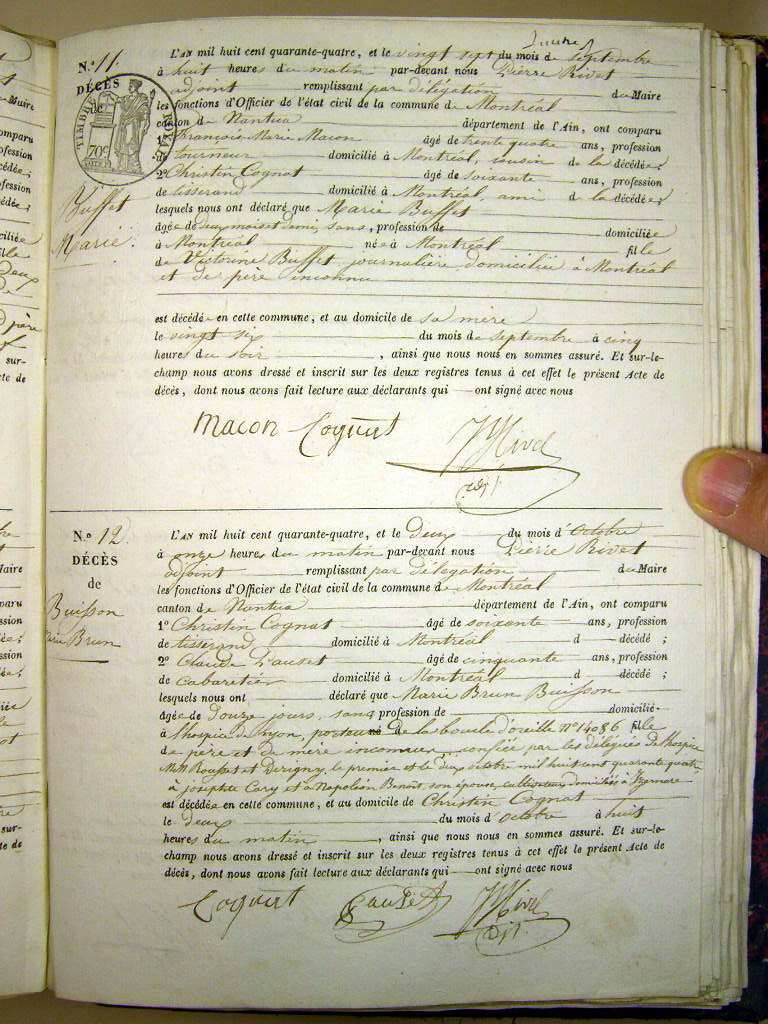 N.º 11.
DÉCÈS
de
TIMBRE ROYAL
70c
Buffet
Marie.
L'AN mil huit cent quarante-quatre, et le vingt sept du mois de septembre
à huit heures du matin par-devant nous Pierre Rivet
adjoint remplissant par délégation du Maire
les fonctions d'Officier de l'état civil de la commune de Montréal
canton de Nantua département de l'Ain, ont comparu
1º François Marie Macon âgé de trente quatre ans, profession
de tourneur domicilié à Montréal, cousin de la décédée;
2º Christin Cognat âgé de soixante ans, profession
de tisserand domicilié à Montréal, ami de la décédée;
lesquels nous ont déclaré que Marie Buffet
âgée de deux mois et demi, sans, profession de domiciliée
à Montréal née à Montréal fille
de Victorine Buffet, journalière domiciliée à Montréal
et de père inconnu
est décédée en cette commune, et au domicile de sa mère
le vingt six du mois de septembre à cinq
heures du soir, ainsi que nous nous en sommes assuré. Et sur-le-
champ nous avons dressé et inscrit sur les deux registres tenus à cet effet le présent Acte de
décès, dont nous avons fait lecture aux déclarants qui ont signé avec nous
Macon Cognat Rivet
adj.
N.º 12.
DÉCÈS
de
Buisson
Marie Brun
L'AN mil huit cent quarante-quatre, et le deux du mois d'octobre
à onze heures du matin par-devant nous Pierre Rivet
adjoint remplissant par délégation du Maire
les fonctions d'Officier de l'état civil de la commune de Montréal
canton de Nantua département de l'Ain, ont comparu
1º Christin Cognat âgé de soixante ans, profession
de tisserand domicilié à Montréal d décédé;
2º Claude Pauset âgé de cinquante ans, profession
de cabaretier domicilié à Montréal d décédé;
lesquels nous ont déclaré que Marie Brun Buisson
âgée de douze jours, sans profession de domicilié
à l'hospice de Lyon, portant de la boucle d'oreille nº 14086 fille
de père et de mère inconnus, confiée par les délégués de l'hospice
MM Rousset et Derigny, le premier et le deux octobre mil huit cent quarante quatre
à Josephte Cary et à Napoléon Benoit, son époux, cultivateurs domiciliés à
est décédée en cette commune, et au domicile de Christin Cognat
le deux du mois d'octobre à huit
heures du matin, ainsi que nous nous en sommes assuré. Et sur-le-
champ nous avons dressé et inscrit sur les deux registres tenus à cet effet le présent Acte de
décès, dont nous avons fait lecture aux déclarants qui ont signé avec nous
Cognat Pauset Rivet
adj.